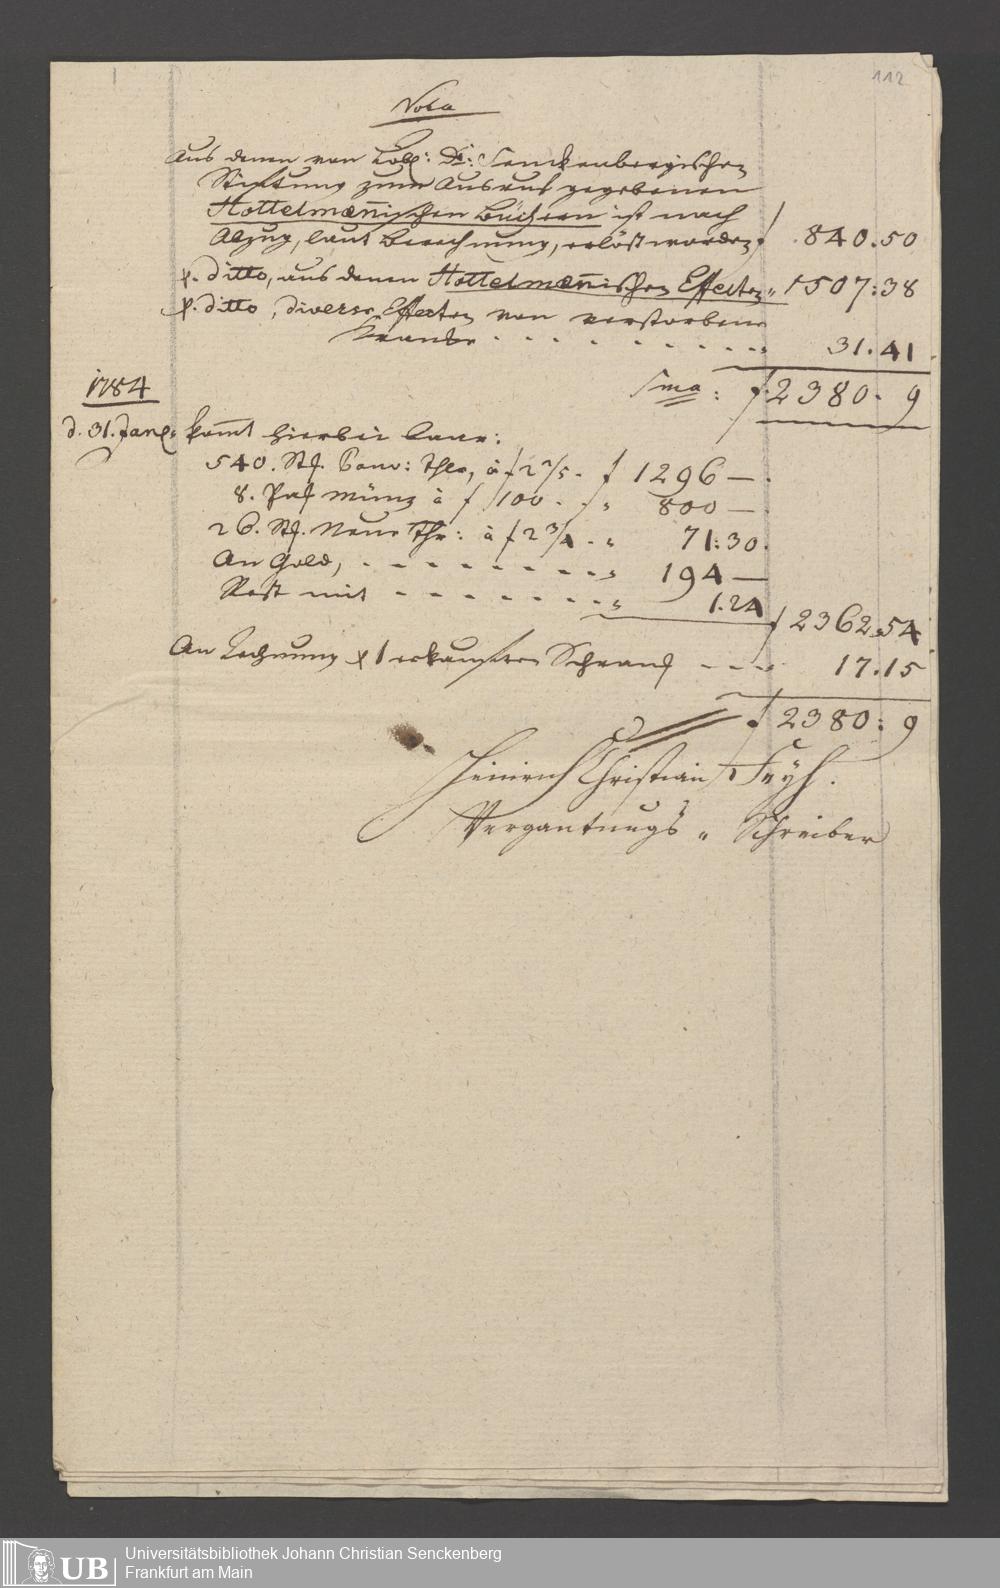 112
Nota
Aus denen von Löbl: Dr: Senckenbergischen
Stiftung zum Ausruf gegebenen
Hottelmañischen Büchern ist nach
Abzug, laut Berechnung, erlöst worden f 840.50
p. ditto, aus denen Hottelmañischen Effecten " 1507:38
p. ditto, diverse Effecten von verstorbene
Krancke - - - - - - - - - " 31.41
Sma: f 2380. 9
1784
d. 31. Jan. kom̄t hierbei baar:
540. Stk. Conv: Thlr, à f 2 2/5 - f 1296 —
8. Pak Müntz à f 100. - " 800 —
26. Stk. Neue Thr: à f 2 3/4 - " 71:30.
An Gold, - - - - - - - - " 194 —
Rest mit - - - - - - - " 1.24
f 2362.54
An Rechnung p 1 erkauften Schranck - - - " 17.15
f 2380: 9
Heinrich Christian Feyh.
Vergantungs " Schreiber
UB
Universitätsbibliothek Johann Christian Senckenberg
Frankfurt am Main